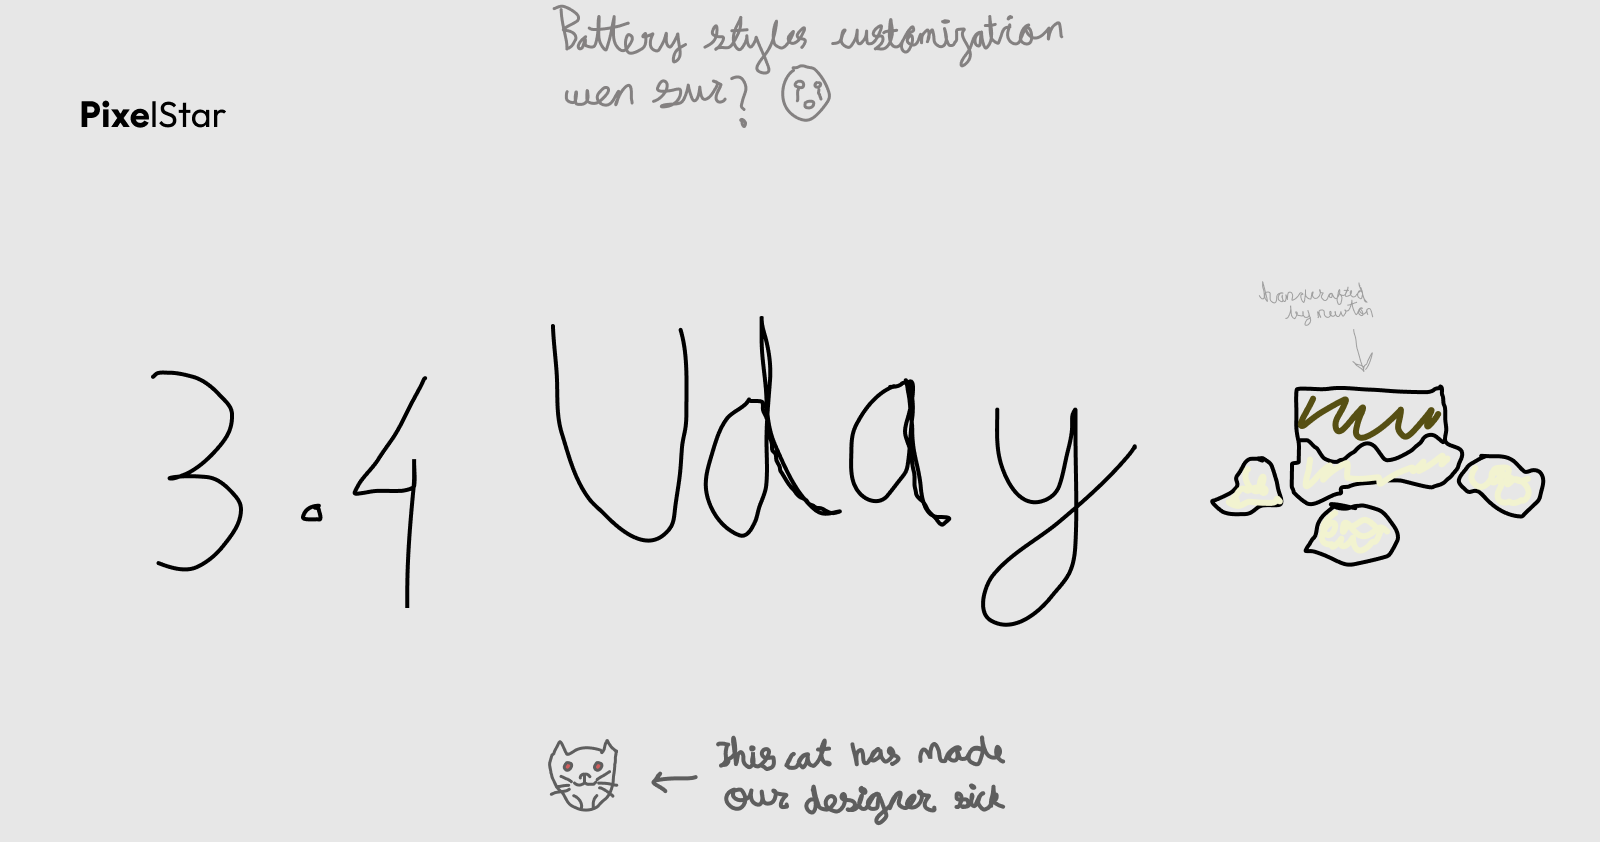 Battery styles customization
wen sur?
PixelStar
handcrafted
by newton
3.4 Uday
This cat has made
our designer sick